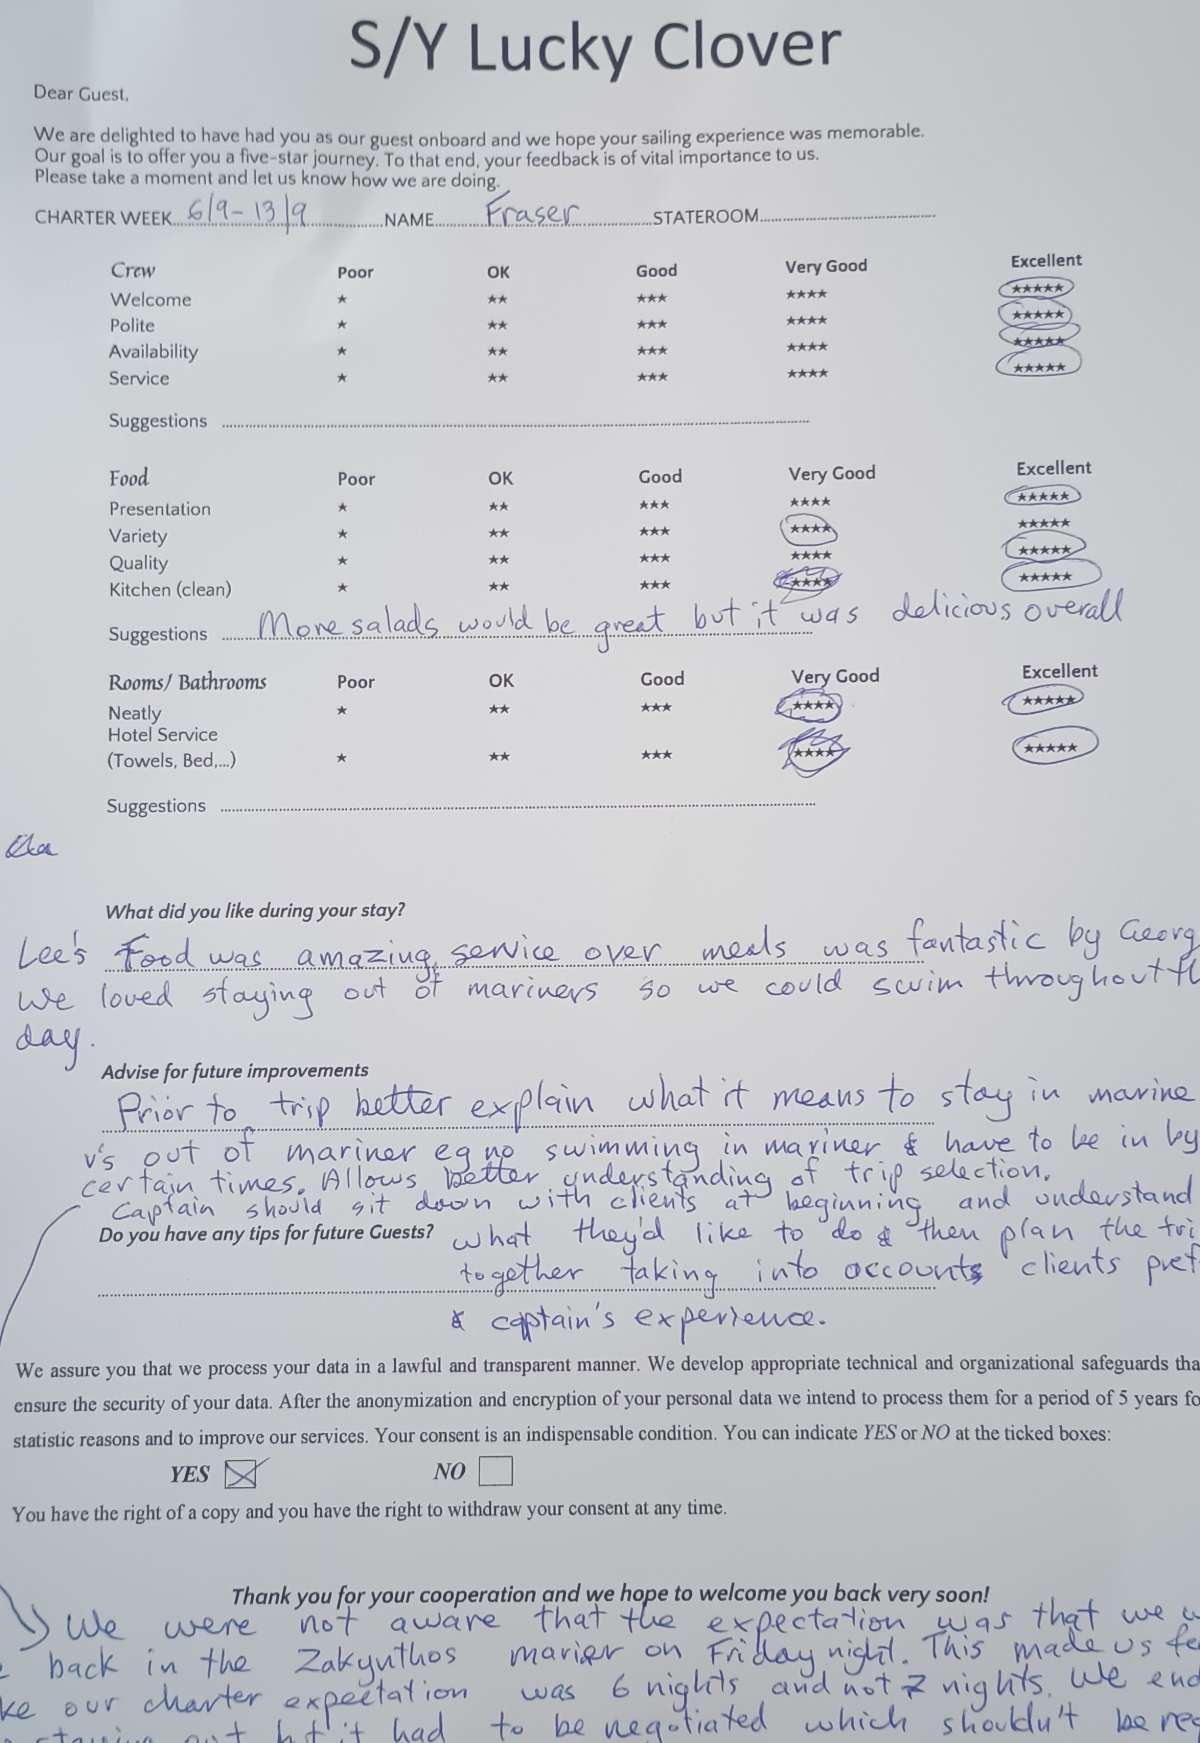 S/Y Lucky Clover
Dear Guest,
We are delighted to have had you as our guest onboard and we hope your sailing experience was memorable.
Our goal is to offer you a five-star journey. To that end, your feedback is of vital importance to us.
Please take a moment and let us know how we are doing.
CHARTER WEEK 6/9 - 13/9 NAME Fraser STATEROOM
Crew Poor OK Good Very Good Excellent
Welcome ★ ★★ ★★★ ★★★★ ★★★★★
Polite ★ ★★ ★★★ ★★★★ ★★★★★
Availability ★ ★★ ★★★ ★★★★ ★★★★★
Service ★ ★★ ★★★ ★★★★ ★★★★★
Suggestions
Food Poor OK Good Very Good Excellent
Presentation ★ ★★ ★★★ ★★★★ ★★★★★
Variety ★ ★★ ★★★ ★★★★ ★★★★★
Quality ★ ★★ ★★★ ★★★★ ★★★★★
Kitchen (clean) ★ ★★ ★★★ ★★★★ ★★★★★
Suggestions More salads would be great but it was delicious overall
Rooms/ Bathrooms Poor OK Good Very Good Excellent
Neatly ★ ★★ ★★★ ★★★★ ★★★★★
Hotel Service
(Towels, Bed,...) ★ ★★ ★★★ ★★★★ ★★★★★
Suggestions
What did you like during your stay?
Lee's Food was amazing, service over meals was fantastic by Georg
We loved staying out of mariners so we could swim throughout
day.
Advise for future improvements
Prior to trip better explain what it means to stay in marine
v's out of mariner eg no swimming in mariner & have to be in by
certain times. Allows better understanding of trip selection.
Captain should sit down with clients at beginning and understand
Do you have any tips for future Guests? what they'd like to do & then plan the tri
together taking into accounts clients pref
& captain's experience.
We assure you that we process your data in a lawful and transparent manner. We develop appropriate technical and organizational safeguards tha
ensure the security of your data. After the anonymization and encryption of your personal data we intend to process them for a period of 5 years fo
statistic reasons and to improve our services. Your consent is an indispensable condition. You can indicate YES or NO at the ticked boxes:
YES NO
You have the right of a copy and you have the right to withdraw your consent at any time.
Thank you for your cooperation and we hope to welcome you back very soon!
We were not aware that the expectation was that we
back in the Zakynthos marier on Friday night. This made us fe
ke our charter expectation was 6 nights and not 7 nights. We end
out but it had to be negotiated which shouldn't be